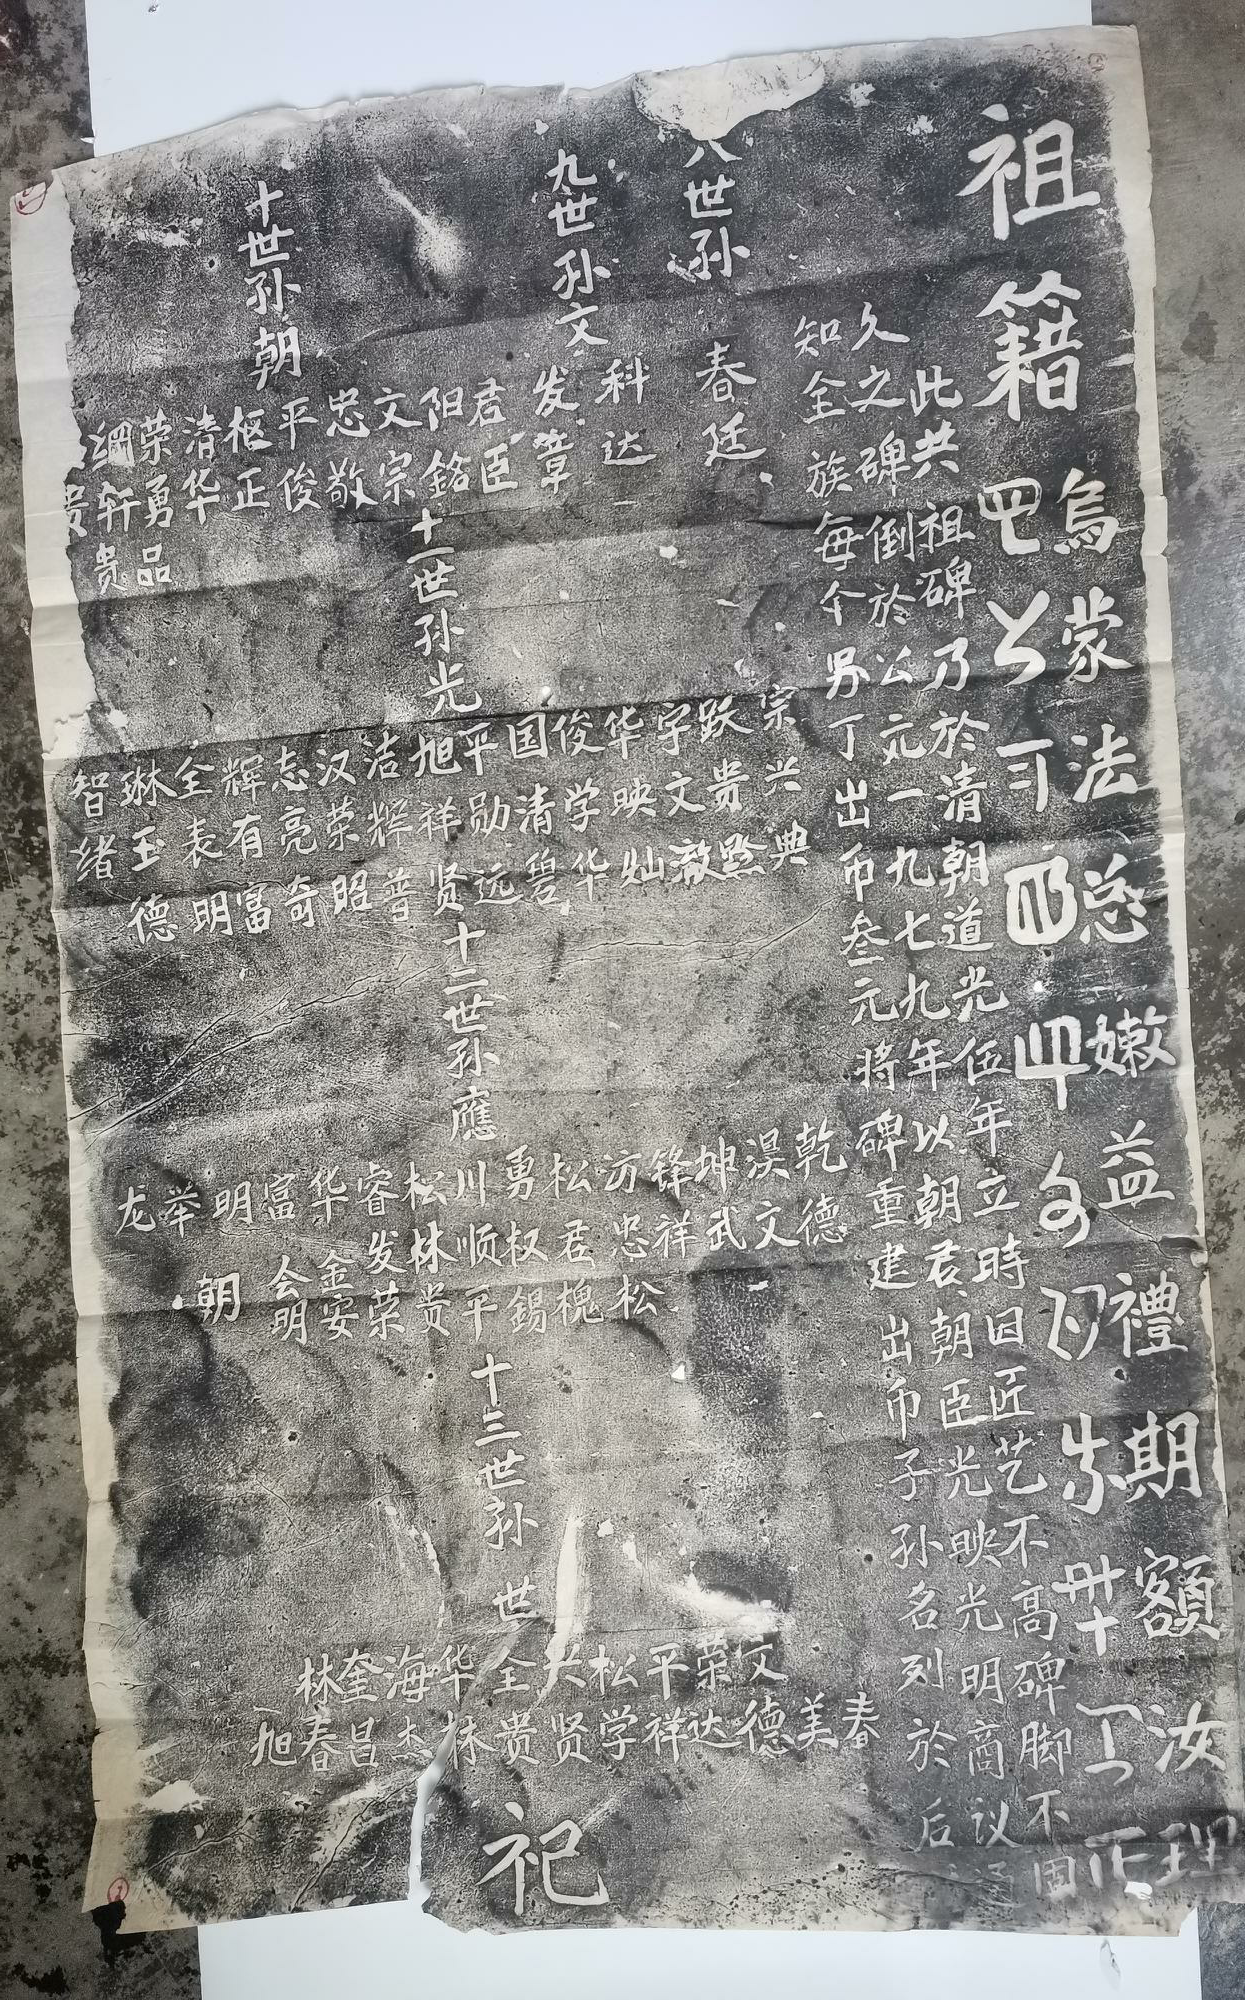 祖籍
烏蒙法总嫩益禮期額汝理
此共祖碑乃於清朝道光伍年立時因匠艺不高碑脚不固
久之碑倒於公元一九七九年以朝君朝臣光映光明商议通
知全族每个男丁出币叁元時碑重建出币子孙名列於后
八世孙
春廷
九世孙文
科达
发章
十世孙朝
君臣
阳銘
文宗
忠敬
平俊
枢正
清华
荣勇品
綱轩贵
贵
十一世孙光
宗兴典
跃贵
字文
华映灿
俊学华
国清碧
平勋远
旭祥贤
洁辉普
汉荣昭
志亮奇
辉有富
全表明
琳玉德
智绪
十二世孙應
乾德
淏文
坤武
锋祥
汸忠松
松君槐
勇权錫
川顺平
松林贵
睿发荣
华金安
富会明
明朝
举
龙
十三世孙世
春
美
文德
荣达
平祥
松学
大贤
全贵
华林
海杰
奎昌
林春
旭
祀